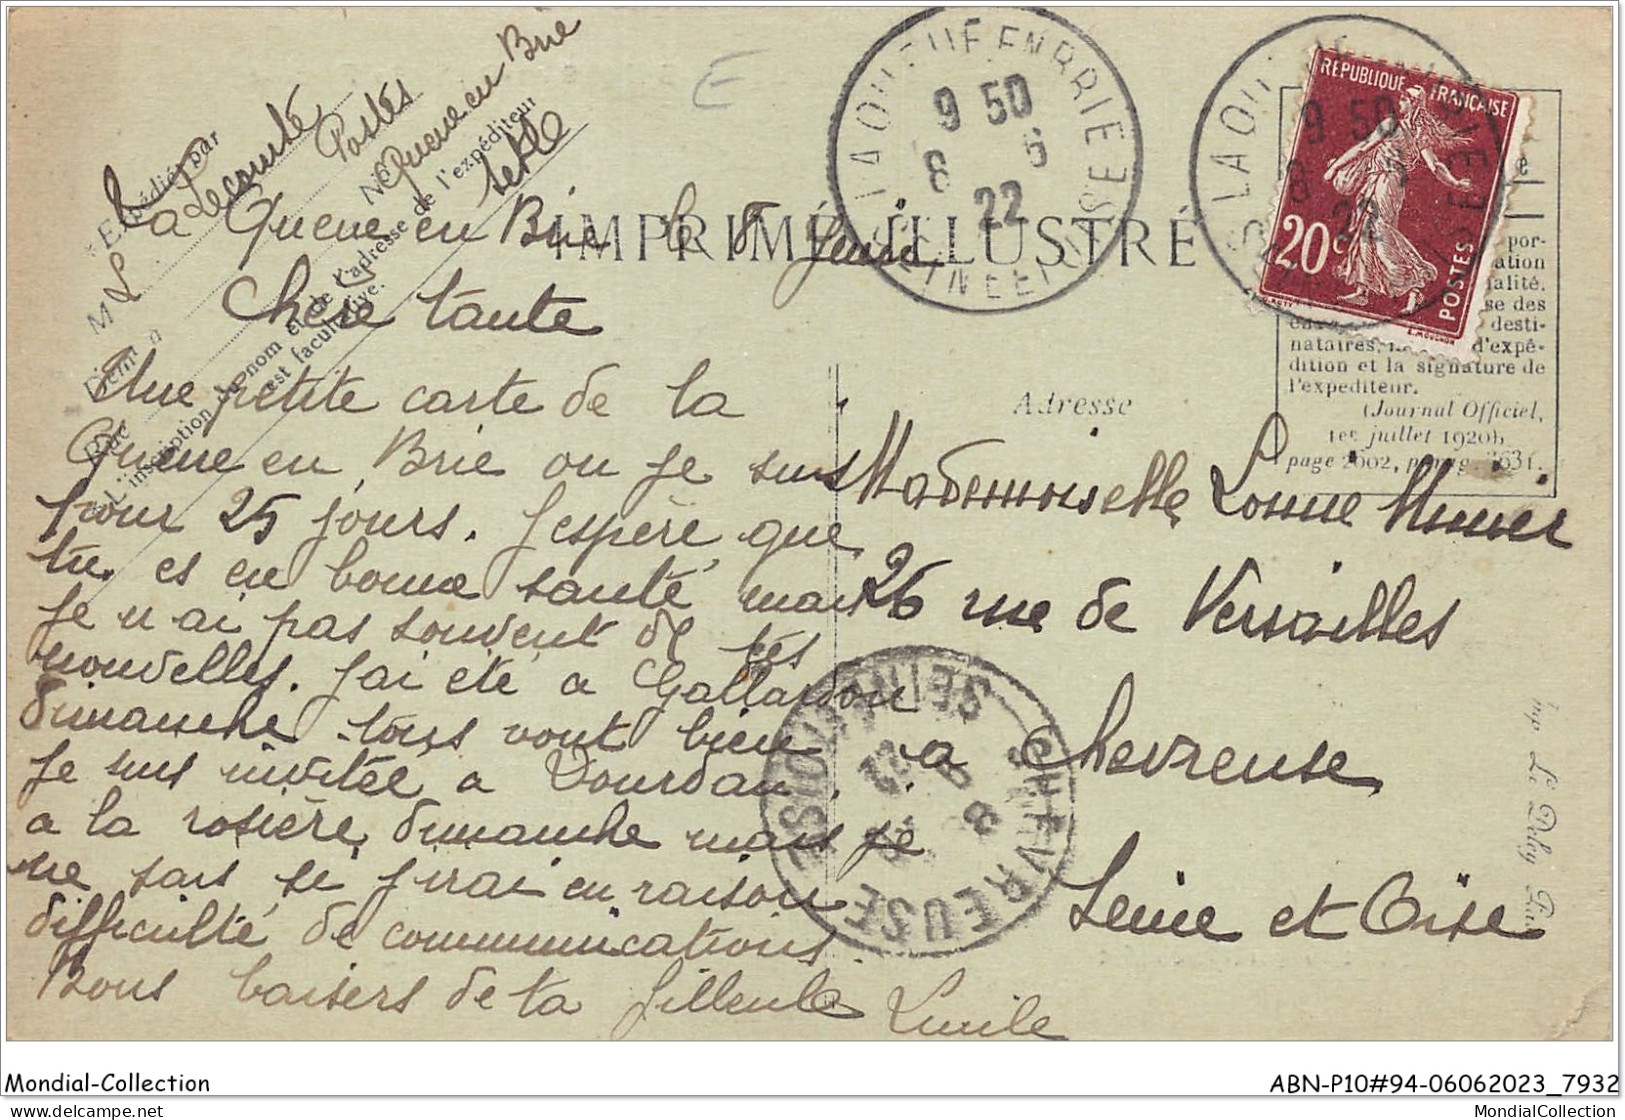 Expédié par
M L Lecomte
Postes
Queue en Brie
S et O
L'inscription du nom et de l'adresse de l'expéditeur
est facultative.
IMPRIMÉ ILLUSTRÉ
LA QUEUE EN BRIE
9 50
8 6
22
SEINE ET OISE
RÉPUBLIQUE FRANÇAISE
20c
POSTES
La Queue en Brie le 8 Juin
Chère tante
Une petite carte de la
Queue en Brie ou je suis
pour 25 jours. J'espère que
tu es en bonne santé mais
je n'ai pas souvent de tes
nouvelles. J'ai été a Gallardon
dimanche tous vont bien
Je suis invitée a Dourdan
a la rosière dimanche mais je
ne sais si j'irai en raison
difficulté de communications.
Bons baisers de ta filleule Lucile
Adresse
Mademoiselle
26 rue de Versailles
a Chevreuse
Seine et Oise
CHEVREUSE
SEINE-ET-OISE
desti-
nataires, d'expé-
dition et la signature de
l'expéditeur.
(Journal Officiel,
1er juillet 1920,
page
Imp. Le Deley Paris
Mondial-Collection
ABN-P10#94-06062023_7932
delcampe.net
MondialCollection